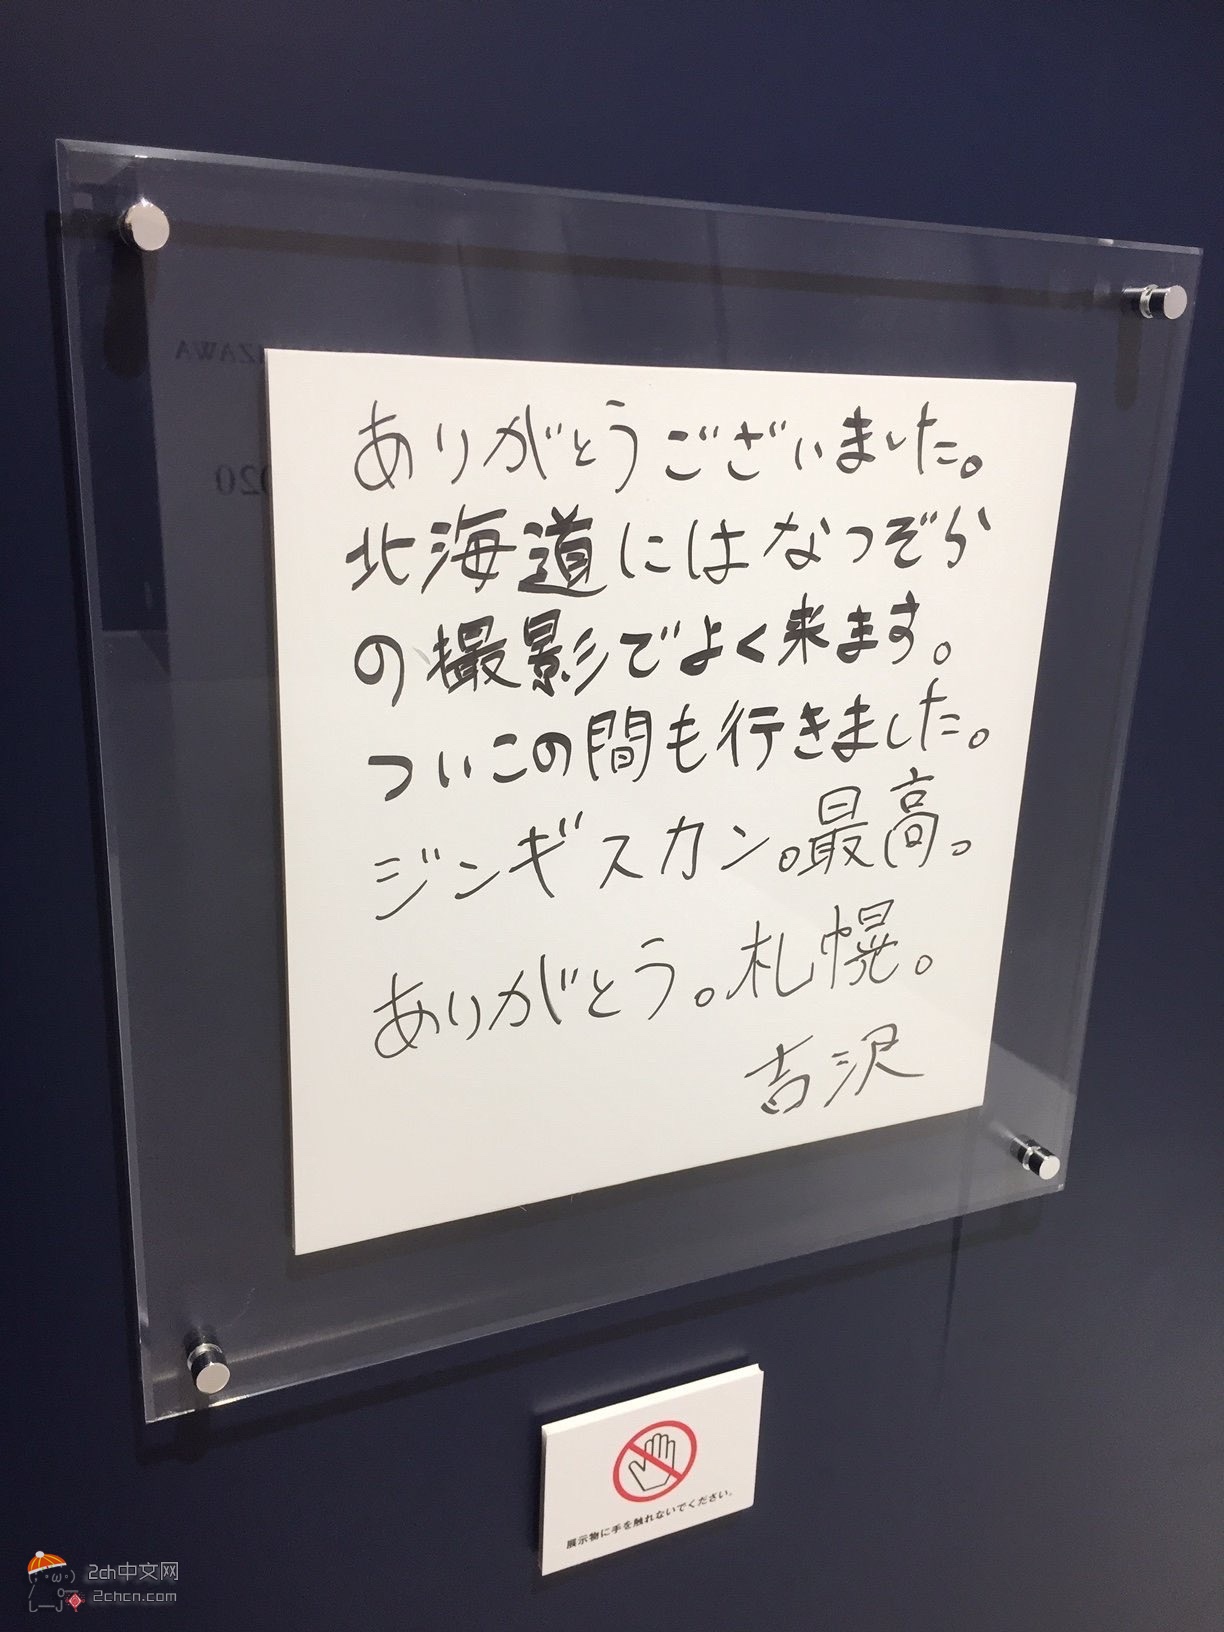 ありがとうございました。
北海道にはなつぞら
の撮影でよく来ます。
ついこの間も行きました。
ジンギスカン。最高。
ありがとう。札幌。
吉沢
展示物に手を触れないでください。
2ch中文网
2chcn.com